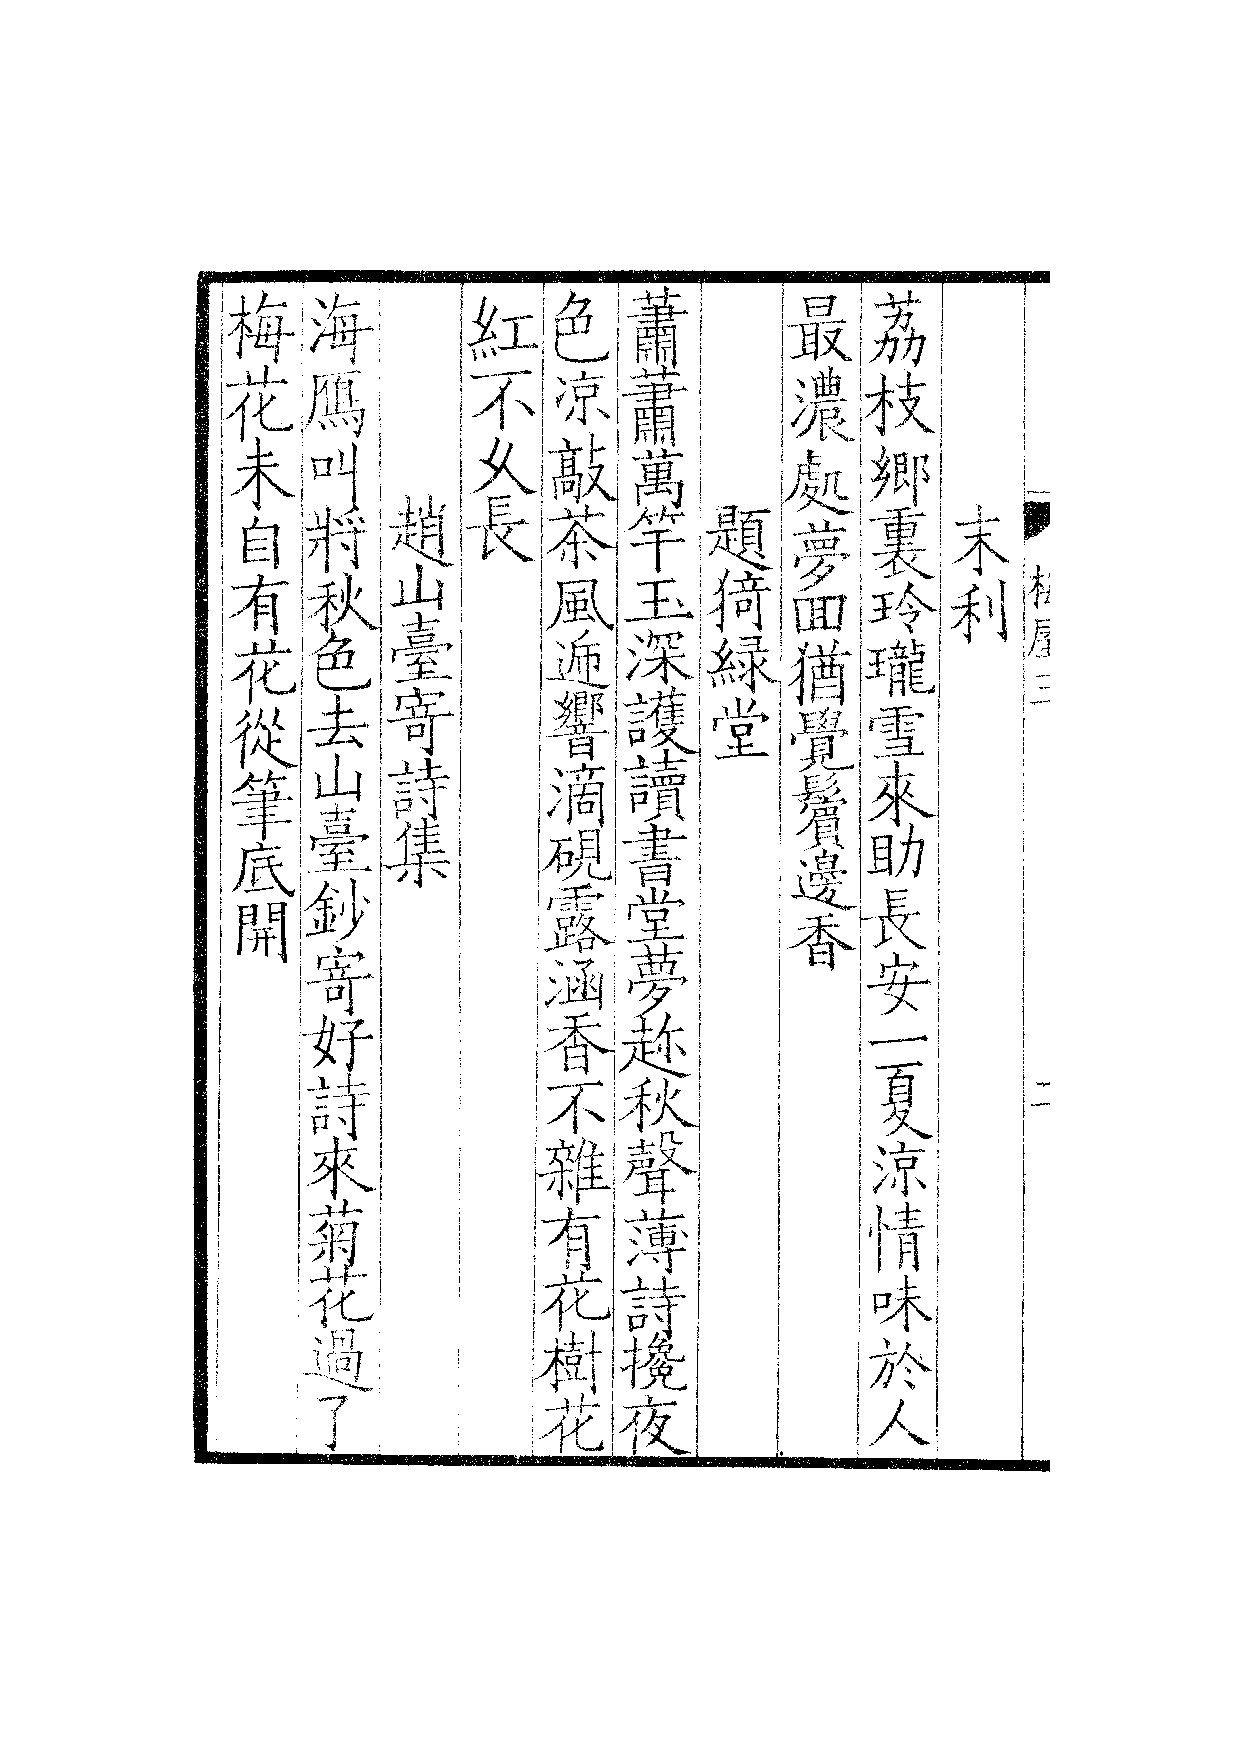 末利
荔枝鄉裏玲瓏雪來助長安一夏涼情味於人
最濃處夢回猶覺鬢邊香
題猗綠堂
蕭蕭萬竿玉深護讀書堂夢趂秋聲薄詩攙夜
色凉敲茶風逓響滴硯露涵香不雜有花樹花
紅不久長
趙山臺寄詩集
海鴈叫將秋色去山臺鈔寄好詩來菊花過了
梅花未自有花從筆底開
二